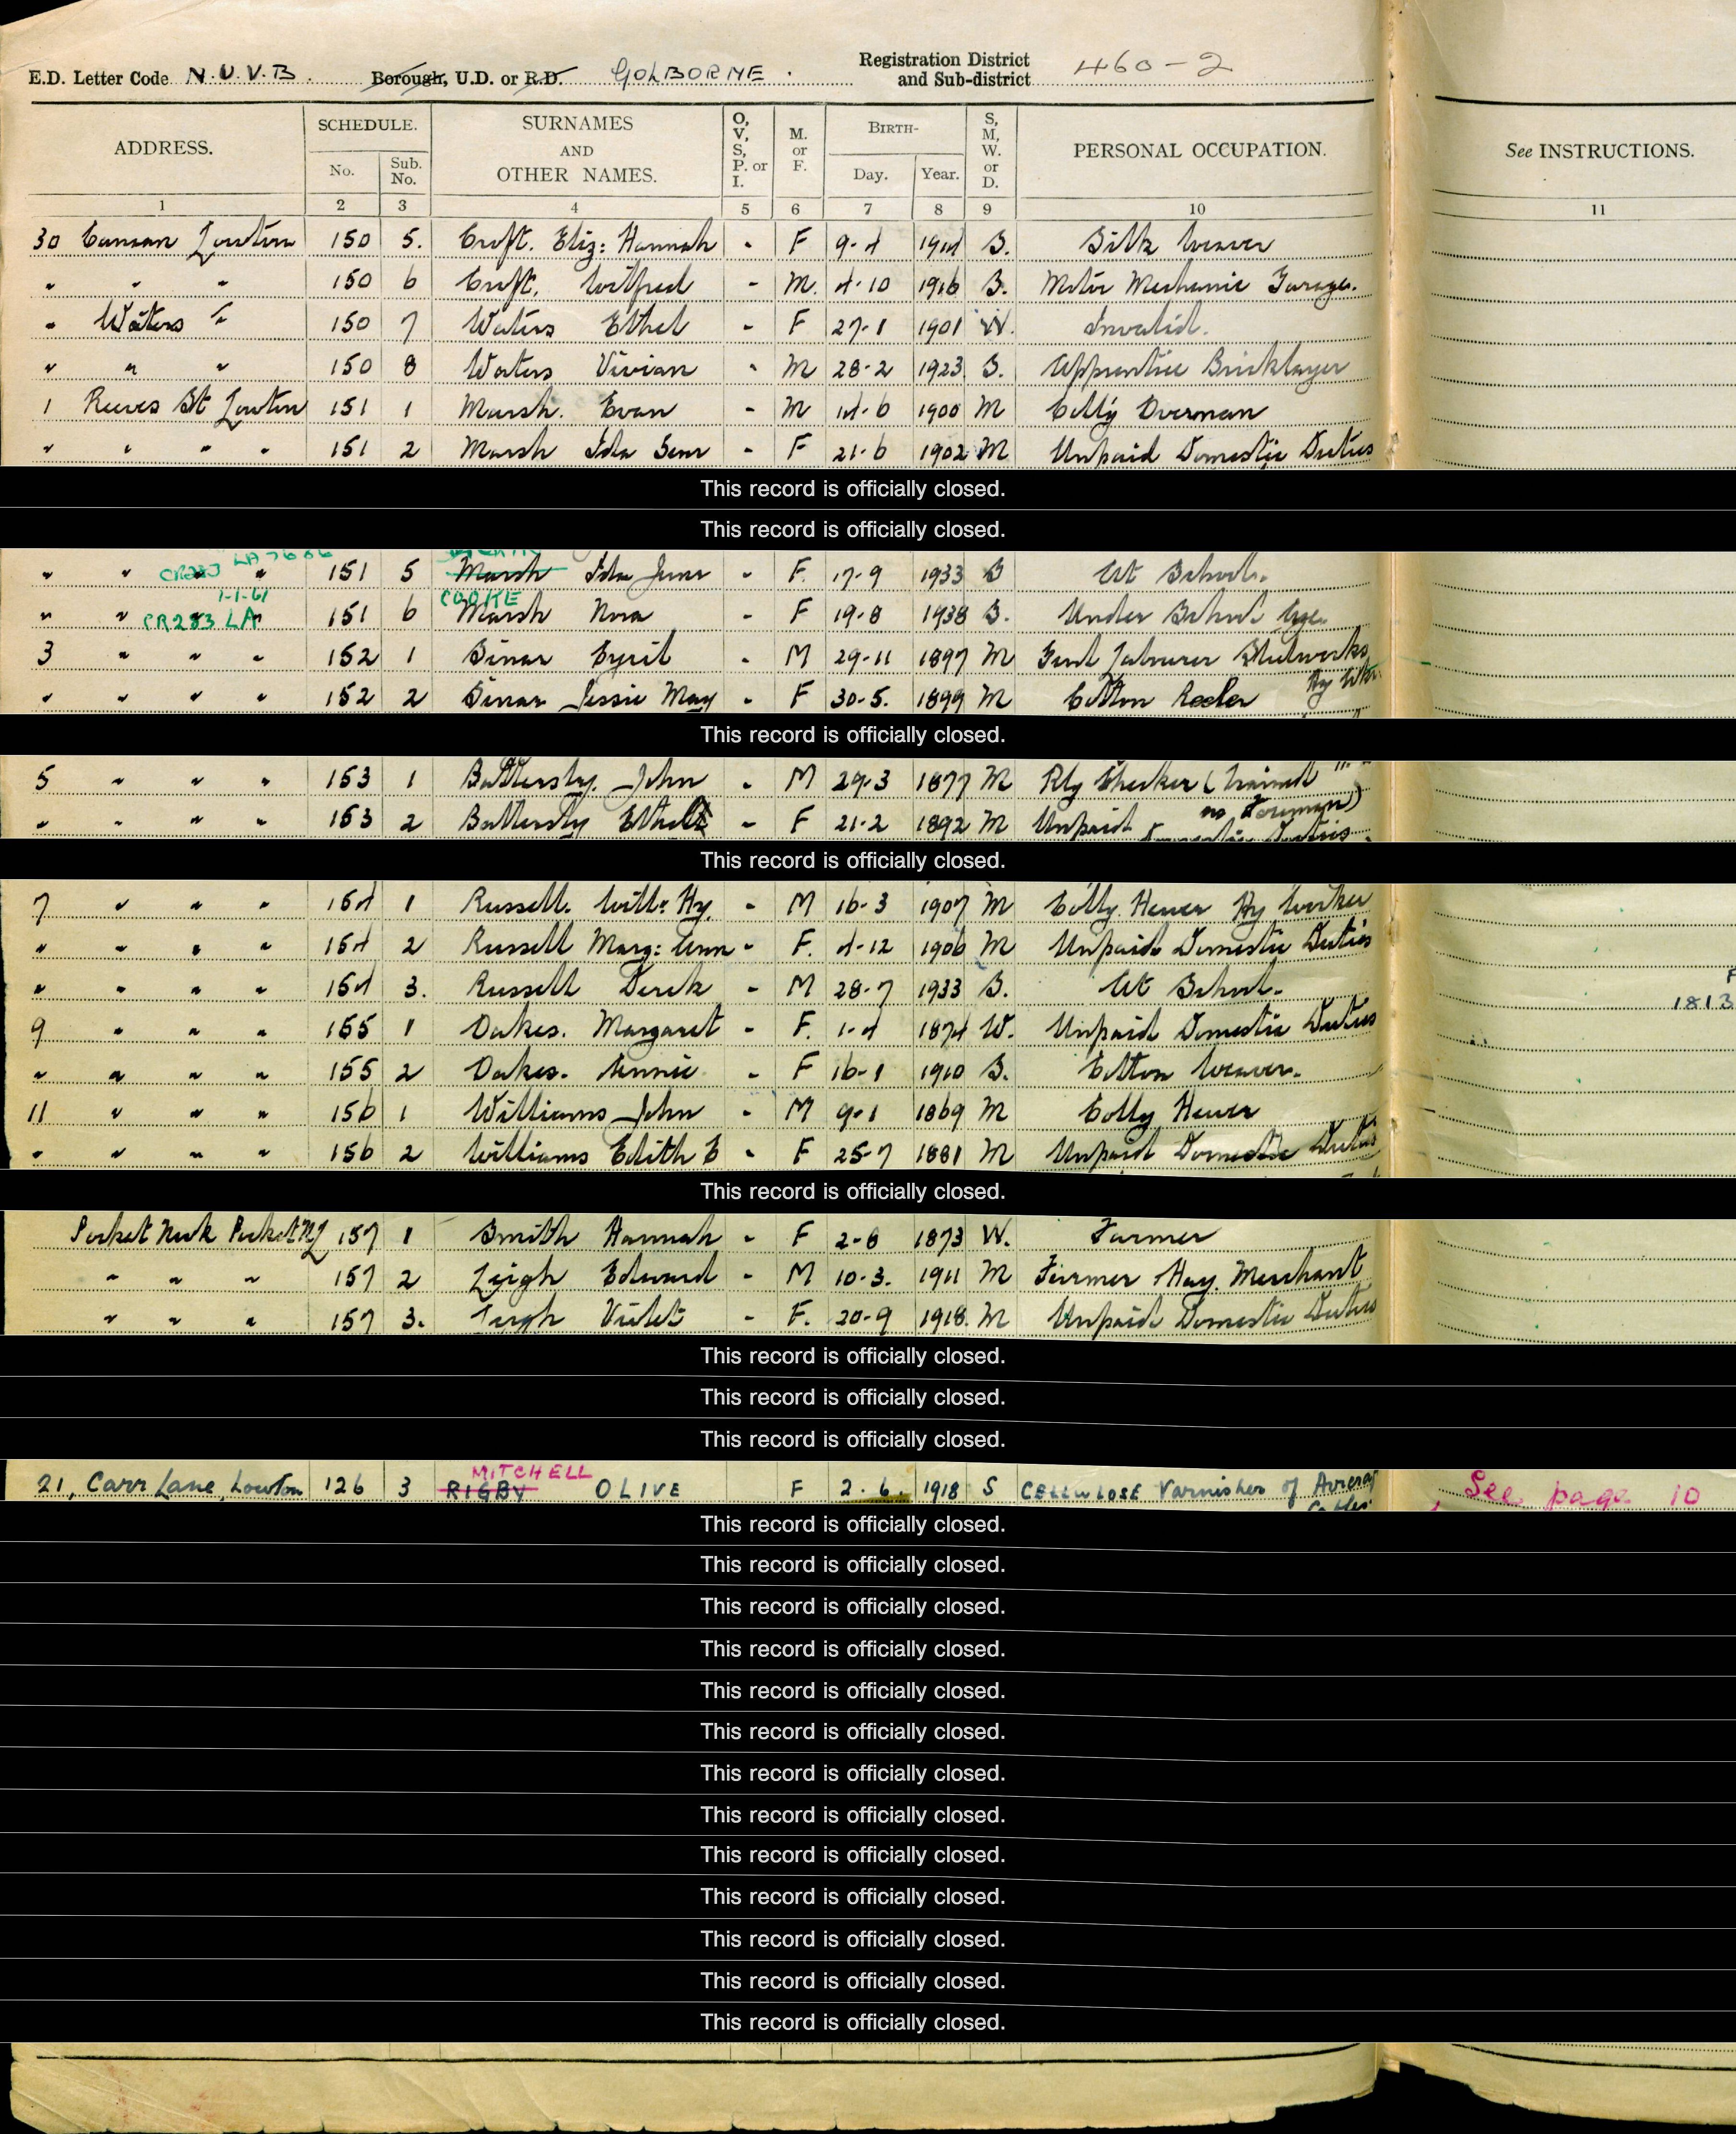 E.D. Letter Code N.U.V.B. Borough, U.D. or R.D. GOLBORNE. Registration District and Sub-district 460-2
ADDRESS. SCHEDULE. No. Sub. No. SURNAMES AND OTHER NAMES. O, V, S, P. or I. M. or F. BIRTH- Day. Year. S, M, W. or D. PERSONAL OCCUPATION. See INSTRUCTIONS.
1 2 3 4 5 6 7 8 9 10 11
30 Lowton 150 5. Croft. Eliz: Hannah - F 9-4 1914 S. Silk Weaver
" " " 150 6 Croft. Wilfred - M. 4-10 1916 S. Motor Mechanic Garage.
" Waters " 150 7 Waters Ethel - F 27-1 1901 W. Invalid.
" " " 150 8 Waters Vivian - M 28-2 1923 S. Apprentice Bricklayer
1 Reeves St Lowton 151 1 Marsh. Evan - M 14-6 1900 M Colly Overman
" " " " 151 2 Marsh Ida - F 21-6 1902 M Unpaid Domestic Duties
This record is officially closed.
This record is officially closed.
LA 7686
" " CR283 " 151 5 Marsh Ida June - F. 17-9 1933 S At School.
1-1-61 COOKE
" " CR283 LA 151 6 Marsh Nora - F 19-8 1938 S. Under School Age.
3 " " " 152 1 Sinar Cyril - M 29-11 1897 M Genl Labourer Steelworks
Hy Wkr.
" " " " 152 2 Sinar Jessie May - F 30-5. 1899 M Cotton Reeler
This record is officially closed.
5 " " " 153 1 Battersby. John - M 29-3 1877 M Rly Checker (trained
as Foreman)
" " " " 153 2 Battersby Ethel - F 21-2 1892 M Unpaid Domestic Duties.
This record is officially closed.
7 " " " 154 1 Russell. Willm Hy. - M 16-3 1907 M Colly Hewer Hy Worker
" " " " 154 2 Russell Marg: Ann - F. 4-12 1906 M Unpaid Domestic Duties
" " " " 154 3. Russell Derek - M 28-7 1933 S. At School.
1813
9 " " " 155 1 Oakes. Margaret - F. 1-4 1874 W. Unpaid Domestic Duties
" " " " 155 2 Oakes. Annie - F 16-1 1910 S. Cotton Weaver.
11 " " " 156 1 Williams John - M 9-1 1869 M Colly Hewer
" " " " 156 2 Williams Edith E - F 25-7 1881 M Unpaid Domestic Duties
This record is officially closed.
Pocket Nook 157 1 Smith Hannah - F 2-6 1873 W. Farmer
" " " 157 2 Leigh Edward - M 10-3. 1911 M Farmer Hay Merchant
" " " 157 3. Leigh Violet - F. 20-9 1918. M Unpaid Domestic Duties
This record is officially closed.
This record is officially closed.
This record is officially closed.
MITCHELL
21, Carr Lane, Lowton 126 3 RIGBY OLIVE F 2.6. 1918 S CELLULOSE Varnisher of See page 10
This record is officially closed.
This record is officially closed.
This record is officially closed.
This record is officially closed.
This record is officially closed.
This record is officially closed.
This record is officially closed.
This record is officially closed.
This record is officially closed.
This record is officially closed.
This record is officially closed.
This record is officially closed.
This record is officially closed.